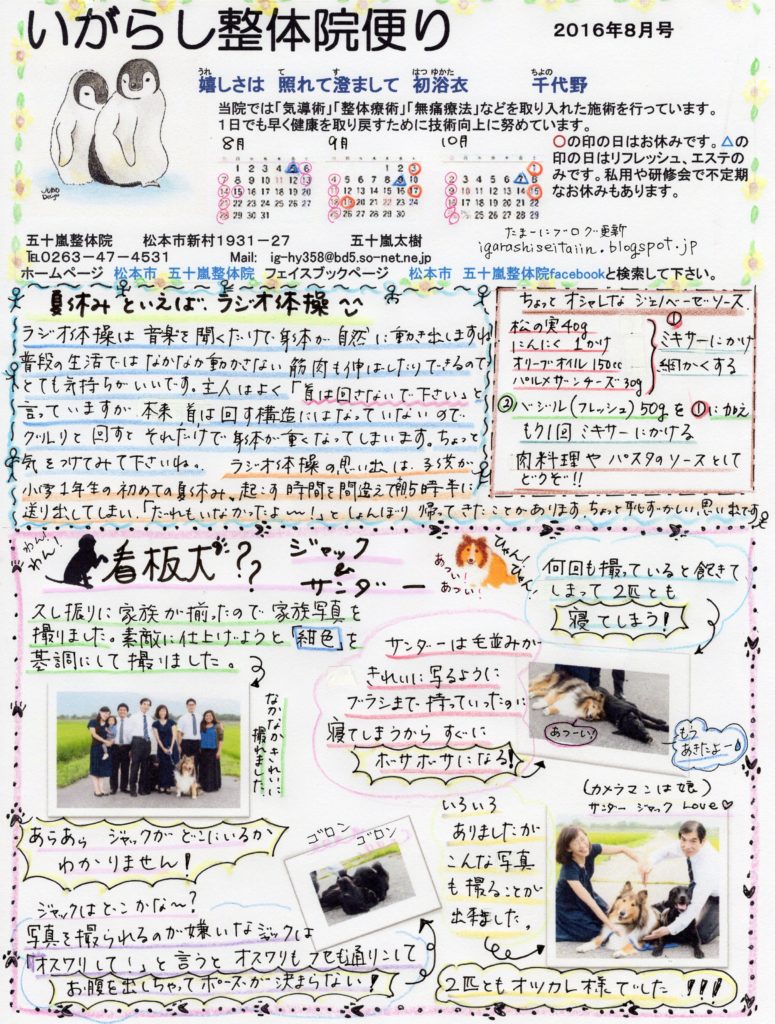 いがらし整体院便り
2016年8月号
嬉しさは 照れて澄まして 初浴衣 千代野
うれ て す はつ ゆかた ちよの
当院では「気導術」「整体療術」「無痛療法」などを取り入れた施術を行っています。
1日でも早く健康を取り戻すために技術向上に努めています。
8月 9月 10月
○の印の日はお休みです。△の
印の日はリフレッシュ、エステの
みです。私用や研修会で不定期
なお休みもあります。
たまーにブログ更新
igarashiseitaiin.blogspot.jp
五十嵐整体院 松本市新村1931-27 五十嵐太樹
℡0263-47-4531 Mail: ig-hy358@bd5.so-net.ne.jp
ホームページ 松本市 五十嵐整体院 フェイスブックページ 松本市 五十嵐整体院facebookと検索して下さい。
夏休みといえば、ラジオ体操
ラジオ体操は音楽を聞くだけで身体が自然に動き出しますね
普段の生活ではなかなか動かさない筋肉も伸ばしたりできるので
とても気持ちがいいです。主人はよく「首は回さないで下さい」と
言っていますが 本来、首は回す構造にはなっていないので
グルリと回すとそれだけで身体が重くなってしまいます。ちょっと
気をつけてみて下さいね。。 ラジオ体操の思い出は、子供が
小学1年生の初めての夏休み、起こす時間を間違えて朝5時半に
送り出してしまい、「だれもいなかったよ〜!」としょんぼり帰ってきたことがあります。ちょっと恥ずかしい思い出です
ちょっとオシャレなジェノベーゼソース
松の実40g
にんにく 1かけ
オリーブオイル150cc
パルメザンチーズ30g
①
ミキサーにかけ
細かくする
② バジル(フレッシュ)50gを①に加え
もう1回ミキサーにかける
肉料理やパスタのソースとして
どうぞ!!
わん!
わん!
看板犬??
ジャック
&
サンダー
あつい!
あつい!
ひゅん!
ひゅん!
久し振りに家族が揃ったので家族写真を
撮りました。素敵に仕上げようと「紺色」を
基調にして撮りました。
なかなかきれいに
撮れました。
何回も撮っていると飽きて
しまって2匹とも
寝てしまう!
サンダーは毛並みが
きれいに写るように
ブラシまで持っていったのに
寝てしまうからすぐに
ボサボサになる!
あつーい!
もう
あきたよー
あらあら ジャックがどこにいるか
わかりません!
ゴロン
ゴロン
ジャックはどこかな〜?
写真を撮られるのが嫌いなジャックは
「オスワリして!」と言うとオスワリもフセも通りこして
お腹を出しちゃってポーズが決まらない!
いろいろ
ありましたが
こんな写真
も撮ることが
出来ました。
(カメラマンは娘)
サンダー ジャック Love♡
2匹ともオツカレ様でした!!!